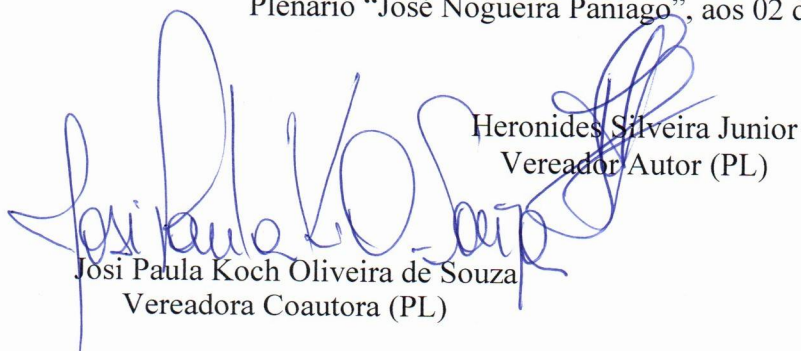 Plenário “José Nogueira Paniago”, aos 02
Heronides Silveira Junior
Vereador Autor (PL)
Josi Paula K O. Souza
Josi Paula Koch Oliveira de Souza
Vereadora Coautora (PL)